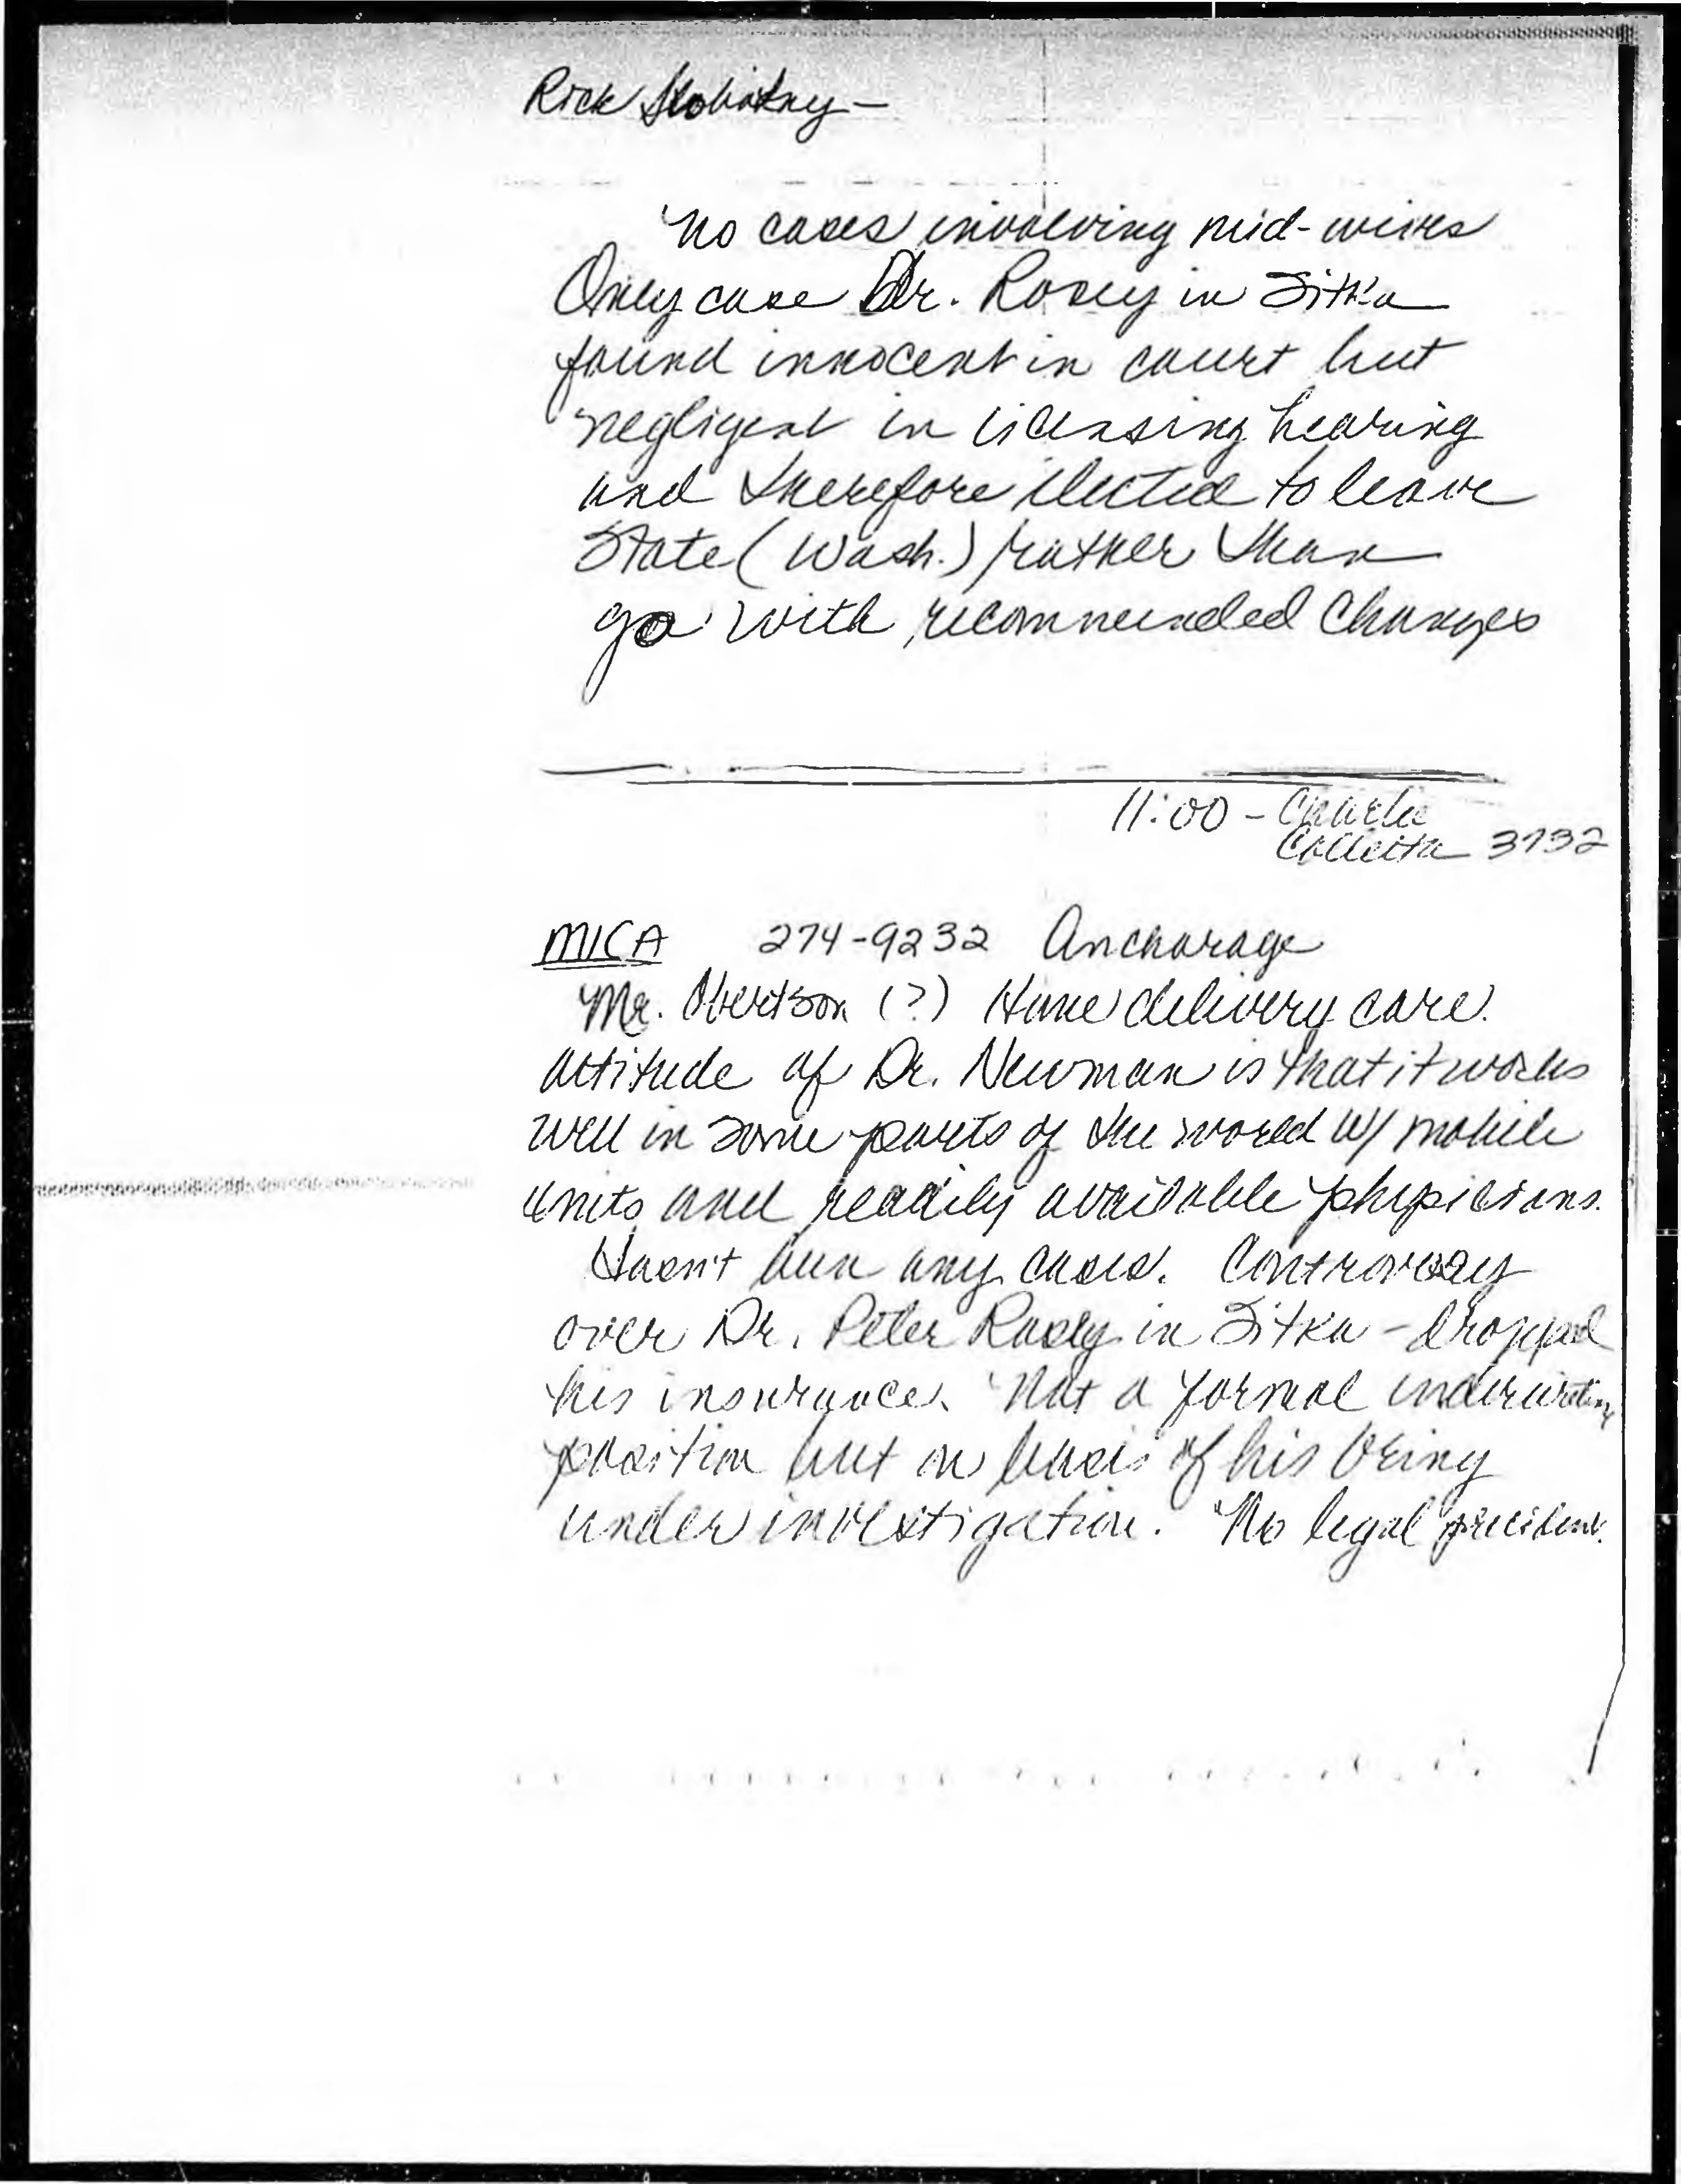 Rick
No cases involving mid-wives
Only case Dr. Rosey in Sitka
found innocent in court but
negligent in licensing hearing
and therefore elected to leave
State (Wash.) rather than
go with recommended changes
11:00 - Charlie
3732
MICA 274-9232 Anchorage
Mr. Obertson (?) Home delivery care.
Attitude of Dr. Newman is that it works
well in some parts of the world w/ mobile
units and readily available physicians.
Hasn't been any cases. Controversy
over Dr. Peter Rosey in Sitka - dropped
his insurance. Not a formal underwriting
position but on basis of his being
under investigation. No legal precident.